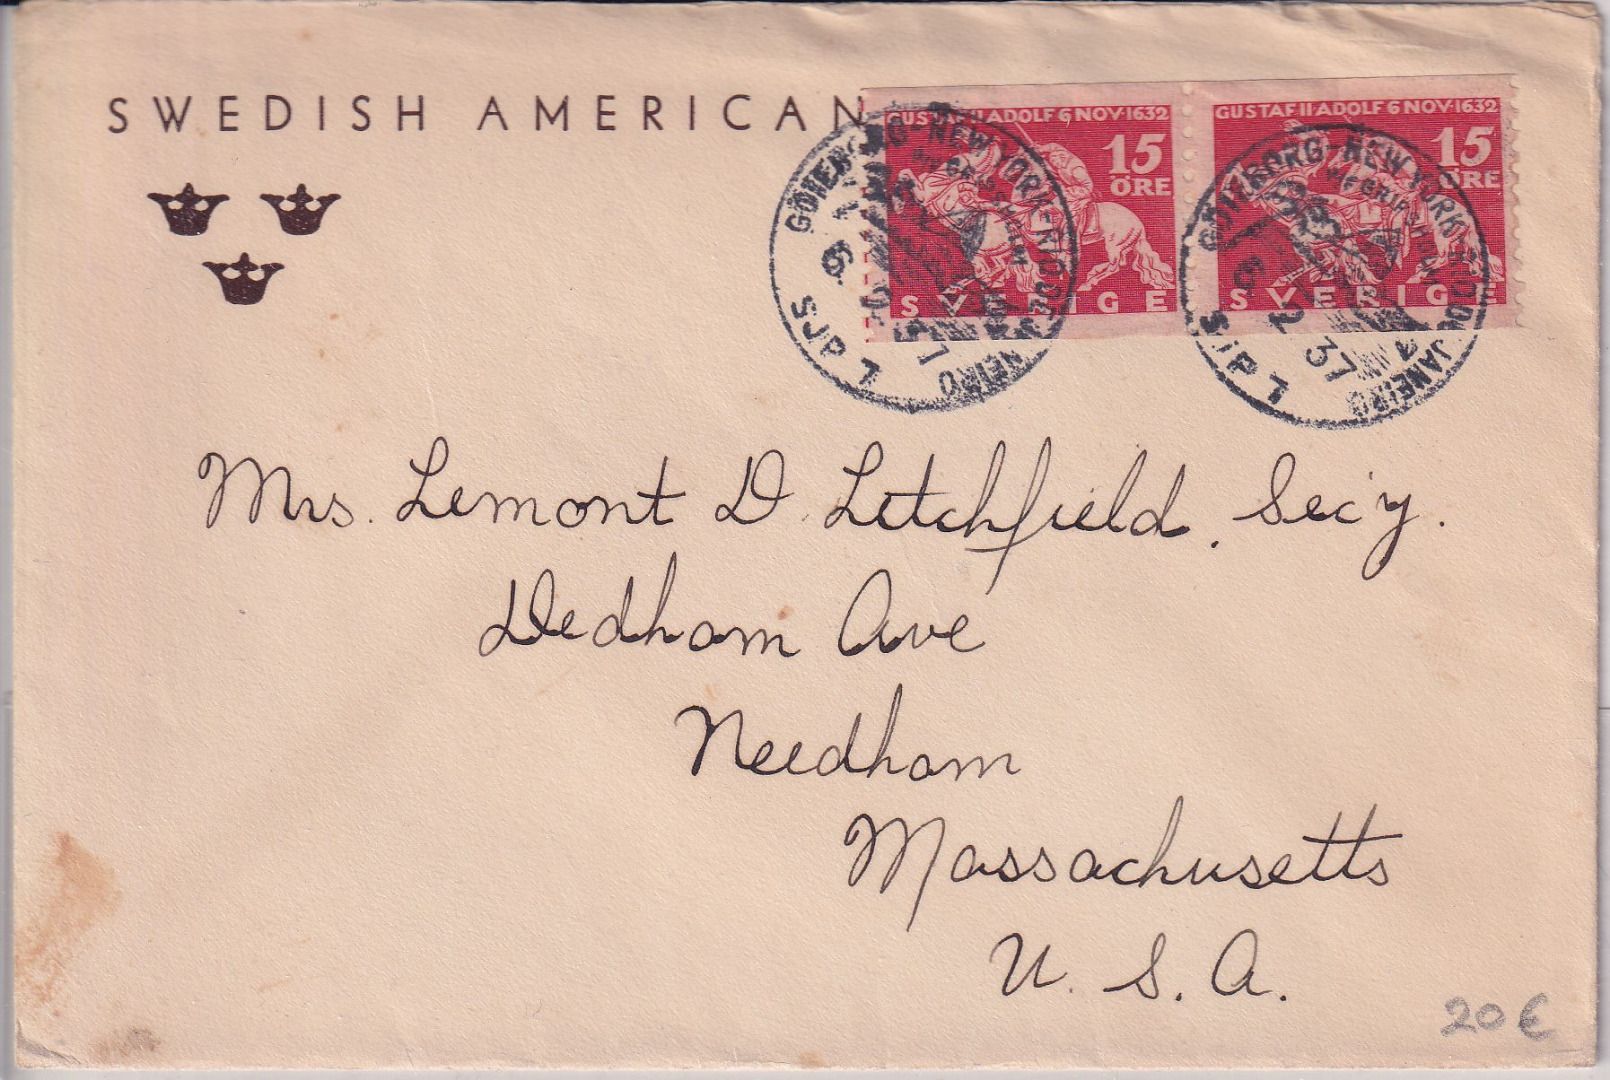 SWEDISH AMERICAN
GUSTAF II ADOLF 6 NOV·1632
15
ÖRE
SVERIGE
GUSTAF II ADOLF 6 NOV·1632
15
ÖRE
SVERIGE
GÖTEBORG-NEW YORK-RIO DE JANEIRO
GRIPSHOLM
9 2 37
SJP 7
GÖTEBORG-NEW YORK-RIO DE JANEIRO
GRIPSHOLM
9 2 37
SJP 7
Mrs. Lemont D. Litchfield, Sec'y.
Dedham Ave
Needham
Massachusetts
U. S. A.
20 €